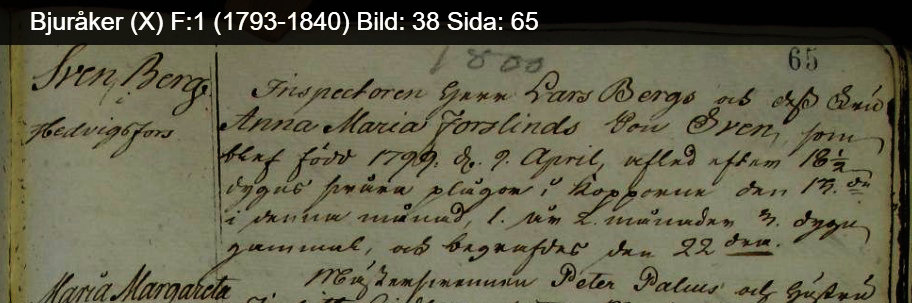 Bjuråker (X) F:1 (1793-1840) Bild: 38 Sida: 65
1800
65
Sven Berg.
Hedvigsfors
Inspectoren Herr Lars Bergs och dess Fru
Anna Maria Forslinds Son Sven, som
blef född 1799. d. 9. April, afled efter 18 1/2
dygns svåra plågor i Kopporne den 13. de
i denna månad, 1. år 2. månader 3. dygn
gammal, och begrafdes den 22 dra.
Maria Margareta
Peter och Hustru